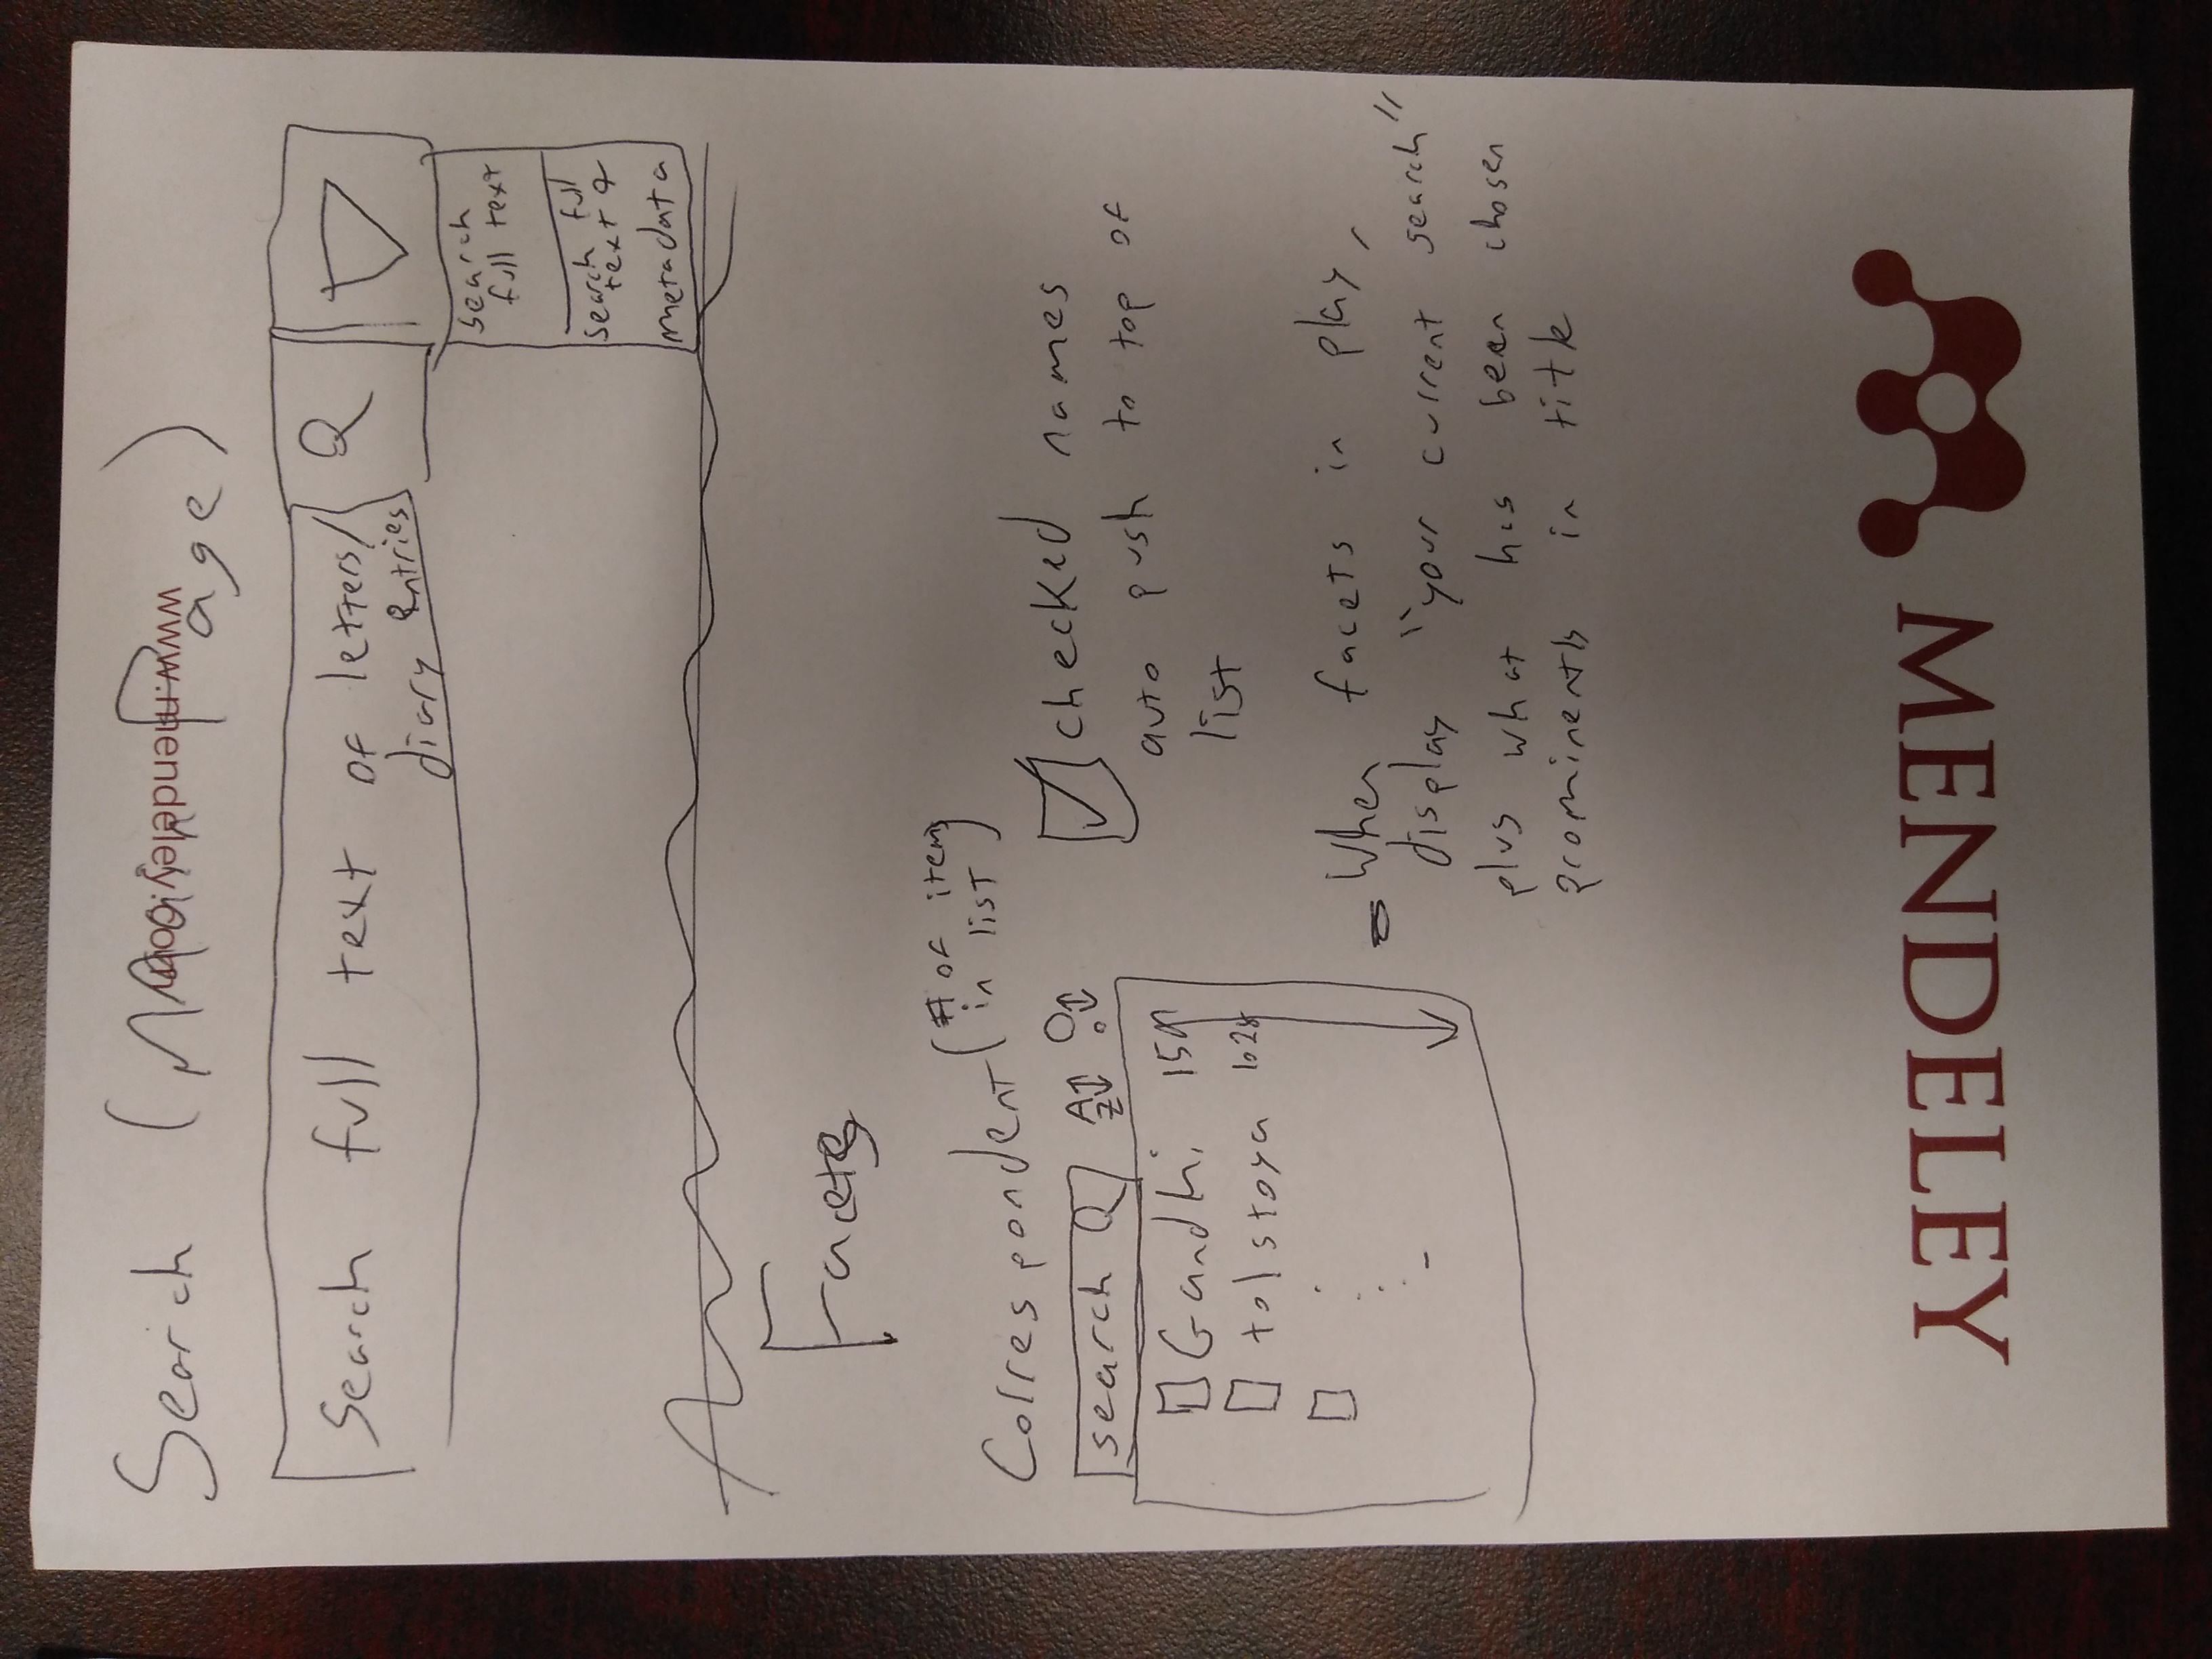 Search (Main Page)
www.mendeley.com
Search full text of letters/
diary entries
search
full text
search full
text &
metadata
Facets
Correspondent (# of items
in list)
search
A
Z
Gandhi
tolstoya
checked names
auto push to top of
list
- When facets in play,
display "your current search"
plus what has been chosen
prominently in title
MENDELEY